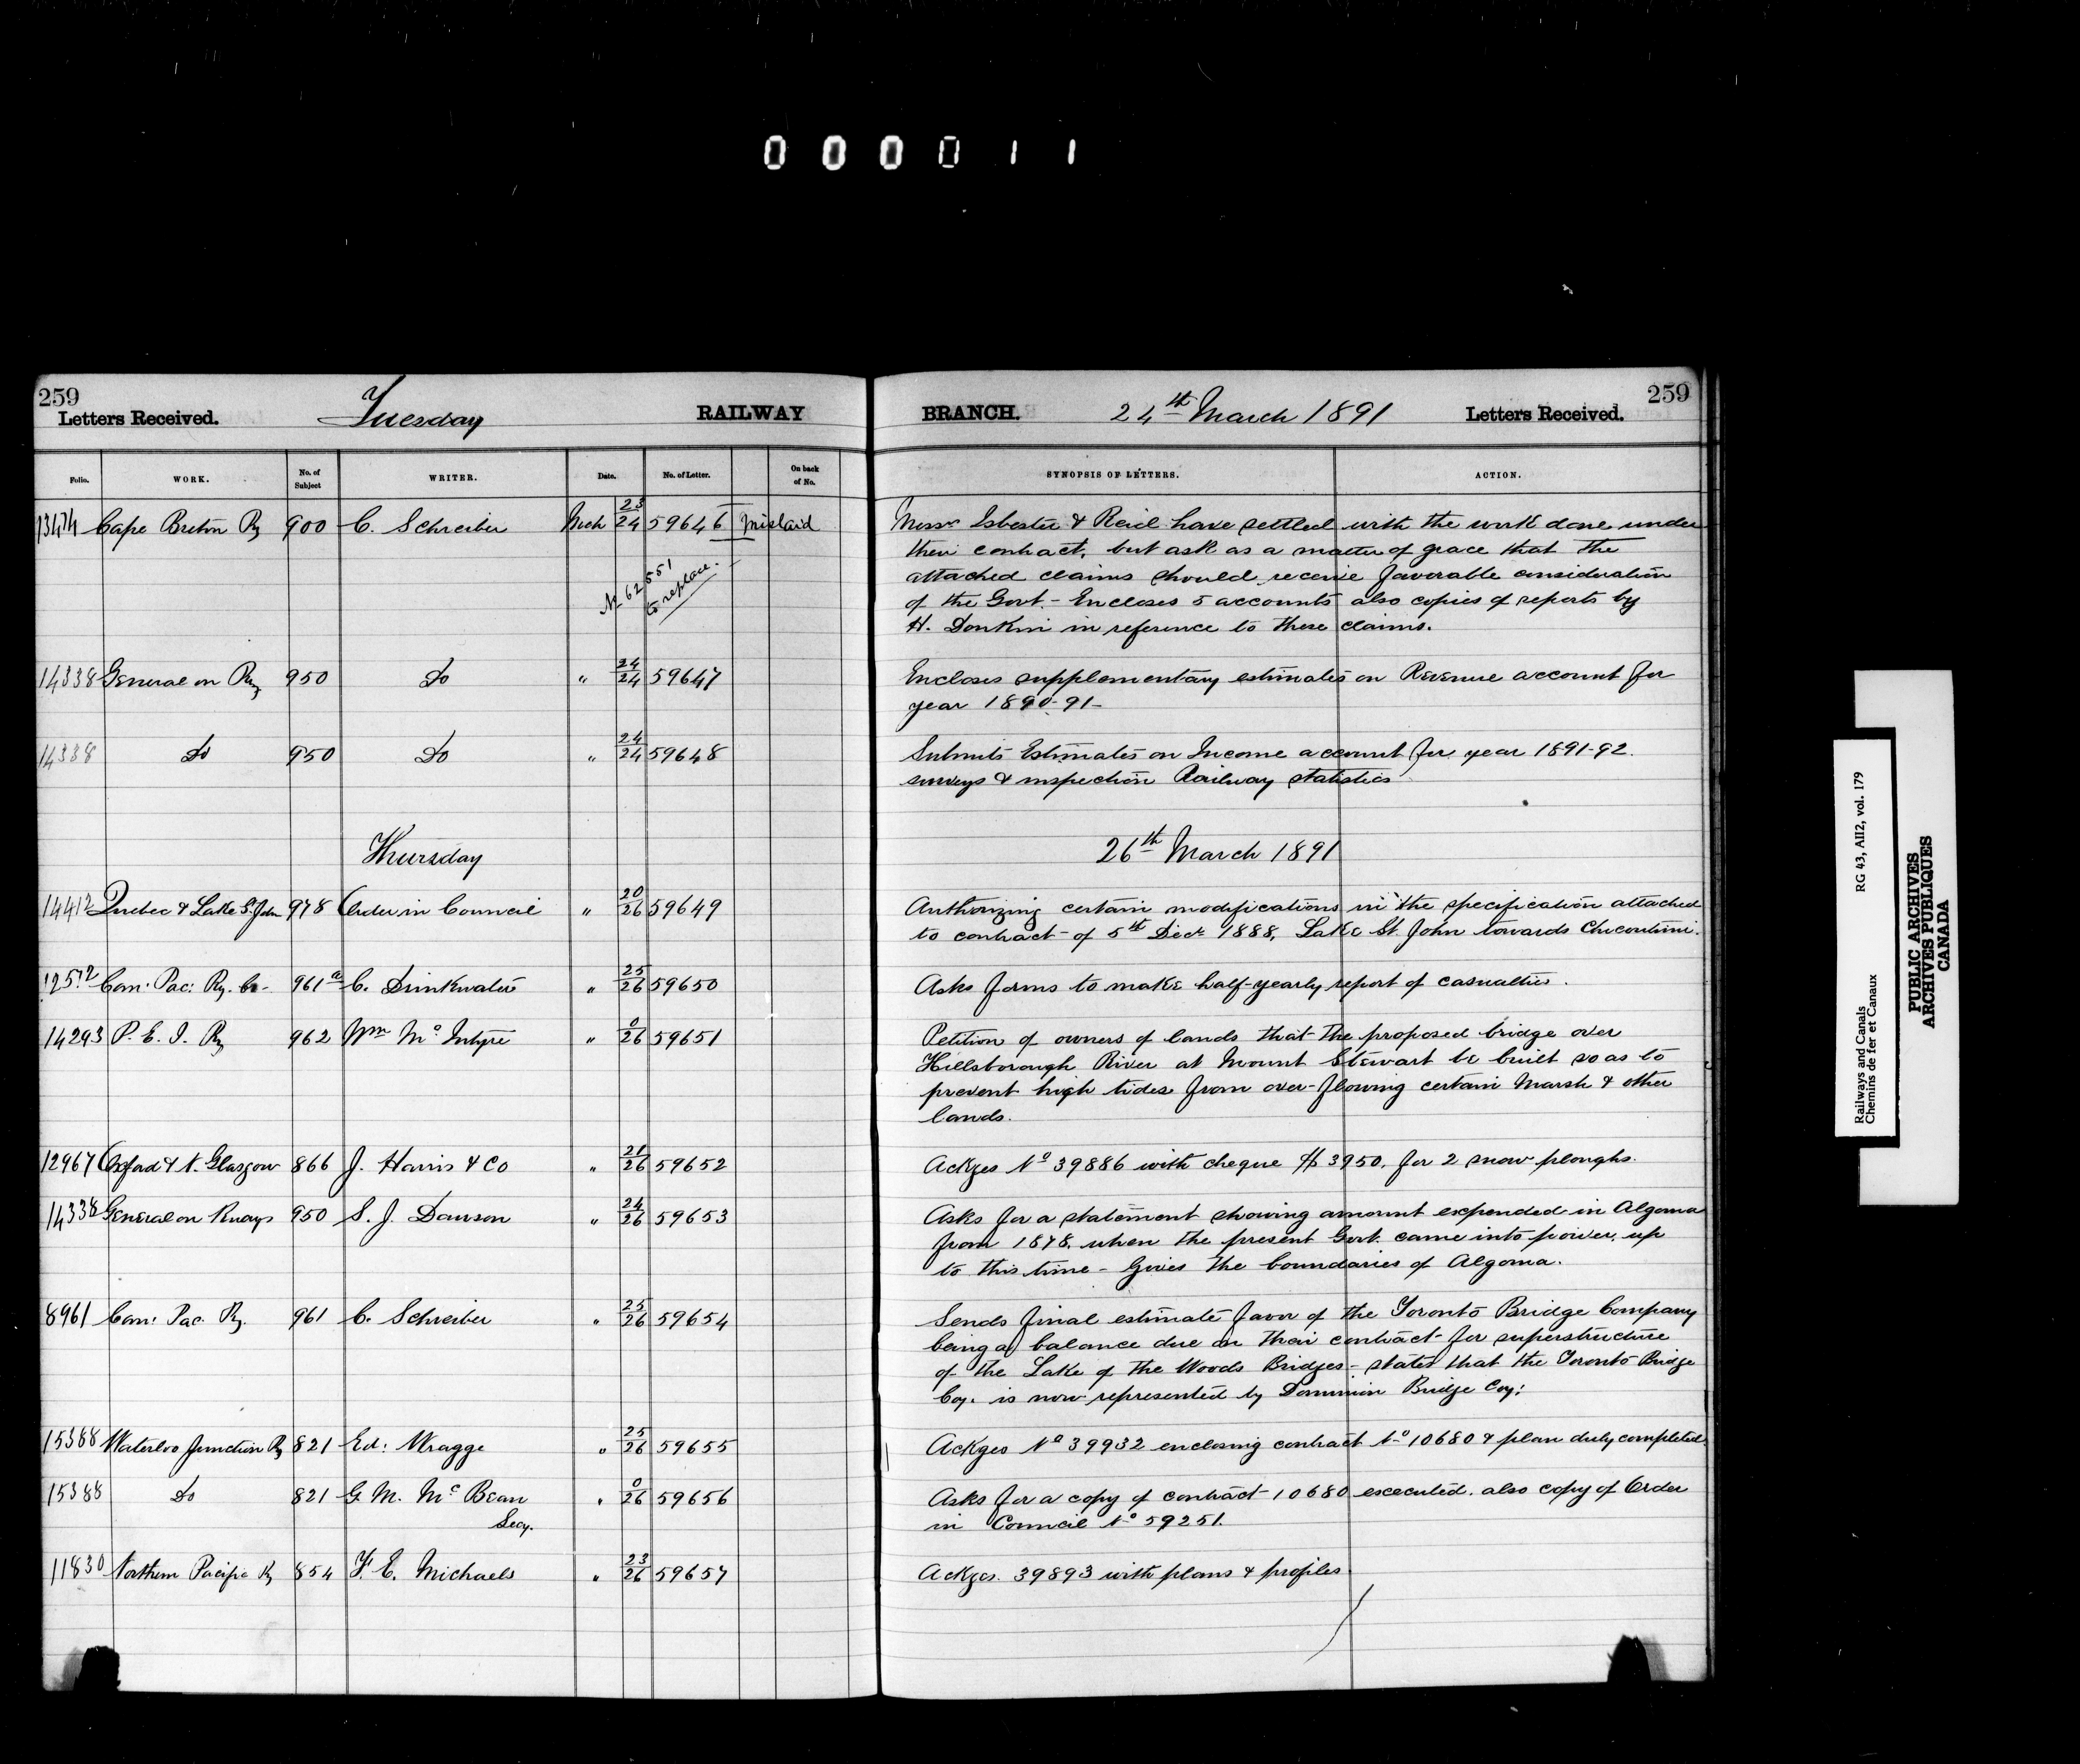 000011
259
Letters Received.
Tuesday
RAILWAY
BRANCH.
24th March 1891
Letters Received.
259
Folio. WORK. No. of Subject WRITER. Date. No. of Letter. On back of No. SYNOPSIS OF LETTERS. ACTION.
13474 Cape Breton Ry 900 C. Schreiber Mch 23/24 59646 Mislaid Messrs Isbester & Reid have settled with the work done under
their contract, but ask as a matter of grace that the
No 62551 to replace. attached claims should receive favorable consideration
of the Govt. - Encloses 5 accounts also copies of reports by
H. Donkin in reference to these claims.
14338 General on Ry 950 Do " 24/24 59647 Encloses supplementary estimates on Revenue account for
year 1890-91-
14338 Do 950 Do " 24/24 59648 Submits Estimates on Income account for year 1891-92.
surveys & inspection Railway statistics
Thursday 26th March 1891
14412 Quebec & Lake St. John 978 Order in Council " 20/26 59649 Authorizing certain modifications in the specification attached
to contract of 5th Decr 1888, Lake St. John towards Chicoutimi.
12572 Can. Pac. Ry. Co- 961a C. Drinkwater " 25/26 59650 Asks forms to make half-yearly report of casualties.
14293 P. E. I. Ry 962 Wm McIntyre " 0/26 59651 Petition of owners of lands that the proposed bridge over
Hillsborough River at Mount Stewart be built so as to
prevent high tides from over-flowing certain Marsh & other
lands.
12967 Oxford & N. Glasgow 866 J. Harris & Co " 21/26 59652 Ackges No 39886 with cheque $3950. for 2 snow ploughs.
14338 General on Rways 950 S. J. Dawson " 24/26 59653 Asks for a statement showing amount expended in Algoma
from 1878. when the present Govt. came into power, up
to this time - Gives the boundaries of Algoma.
8961 Can. Pac. Ry. 961 C. Schreiber " 25/26 59654 Sends final estimate favor of the Toronto Bridge Company
being a balance due on their contract for superstructure
of the Lake of the Woods Bridges - states that the Toronto Bridge
Coy. is now represented by Dominion Bridge Coy:
15388 Waterloo Junction Ry 821 Ed: Wragge " 25/26 59655 Ackges No 39932 enclosing contract No 10680 & plan duly completed.
15388 Do 821 G. M. McBean " 0/26 59656 Asks for a copy of contract 10680 executed. also copy of Order
Secy. in Council No 59251.
11830 Northern Pacific Ry 854 F. E. Michaels " 23/26 59657 Ackges. 39893 with plans & profiles
Railways and Canals RG 43, AII2, vol. 179
Chemins de fer et Canaux
PUBLIC ARCHIVES
ARCHIVES PUBLIQUES
CANADA